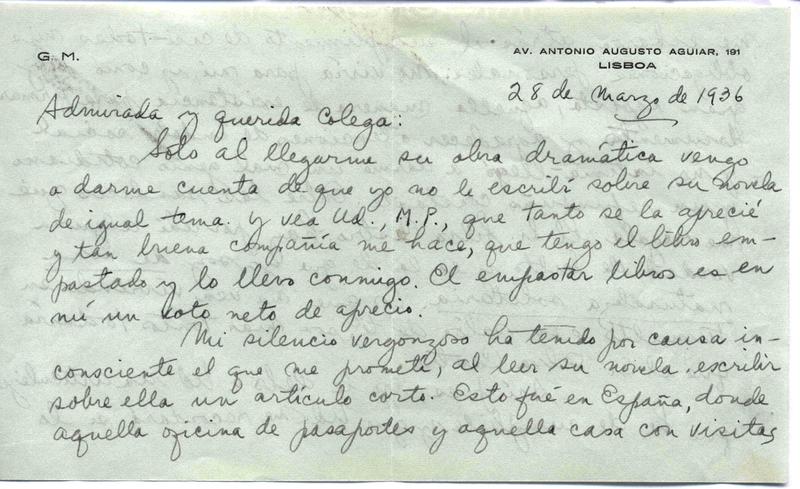 G. M.
AV. ANTONIO AUGUSTO AGUIAR, 191
LISBOA
28 de Marzo de 1936
Admirada y querida Colega:
Solo al llegarme su obra dramática vengo
a darme cuenta de que yo no le escribí sobre su novela
de igual tema. y vea Ud., M.P., que tanto se la aprecié
y tan buena compañía me hace, que tengo el libro em-
pastado y lo llevo conmigo. El empastar libros es en
mí un voto neto de aprecio.
Mi silencio vergonzoso ha tenido por causa in-
consciente el que me prometí, al leer su novela, escribir
sobre ella un artículo corto. Esto fué en España, donde
aquella oficina de pasaportes y aquella casa con visitas